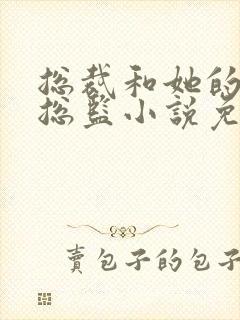 总裁和她的
总监小说免
卖包子的包子